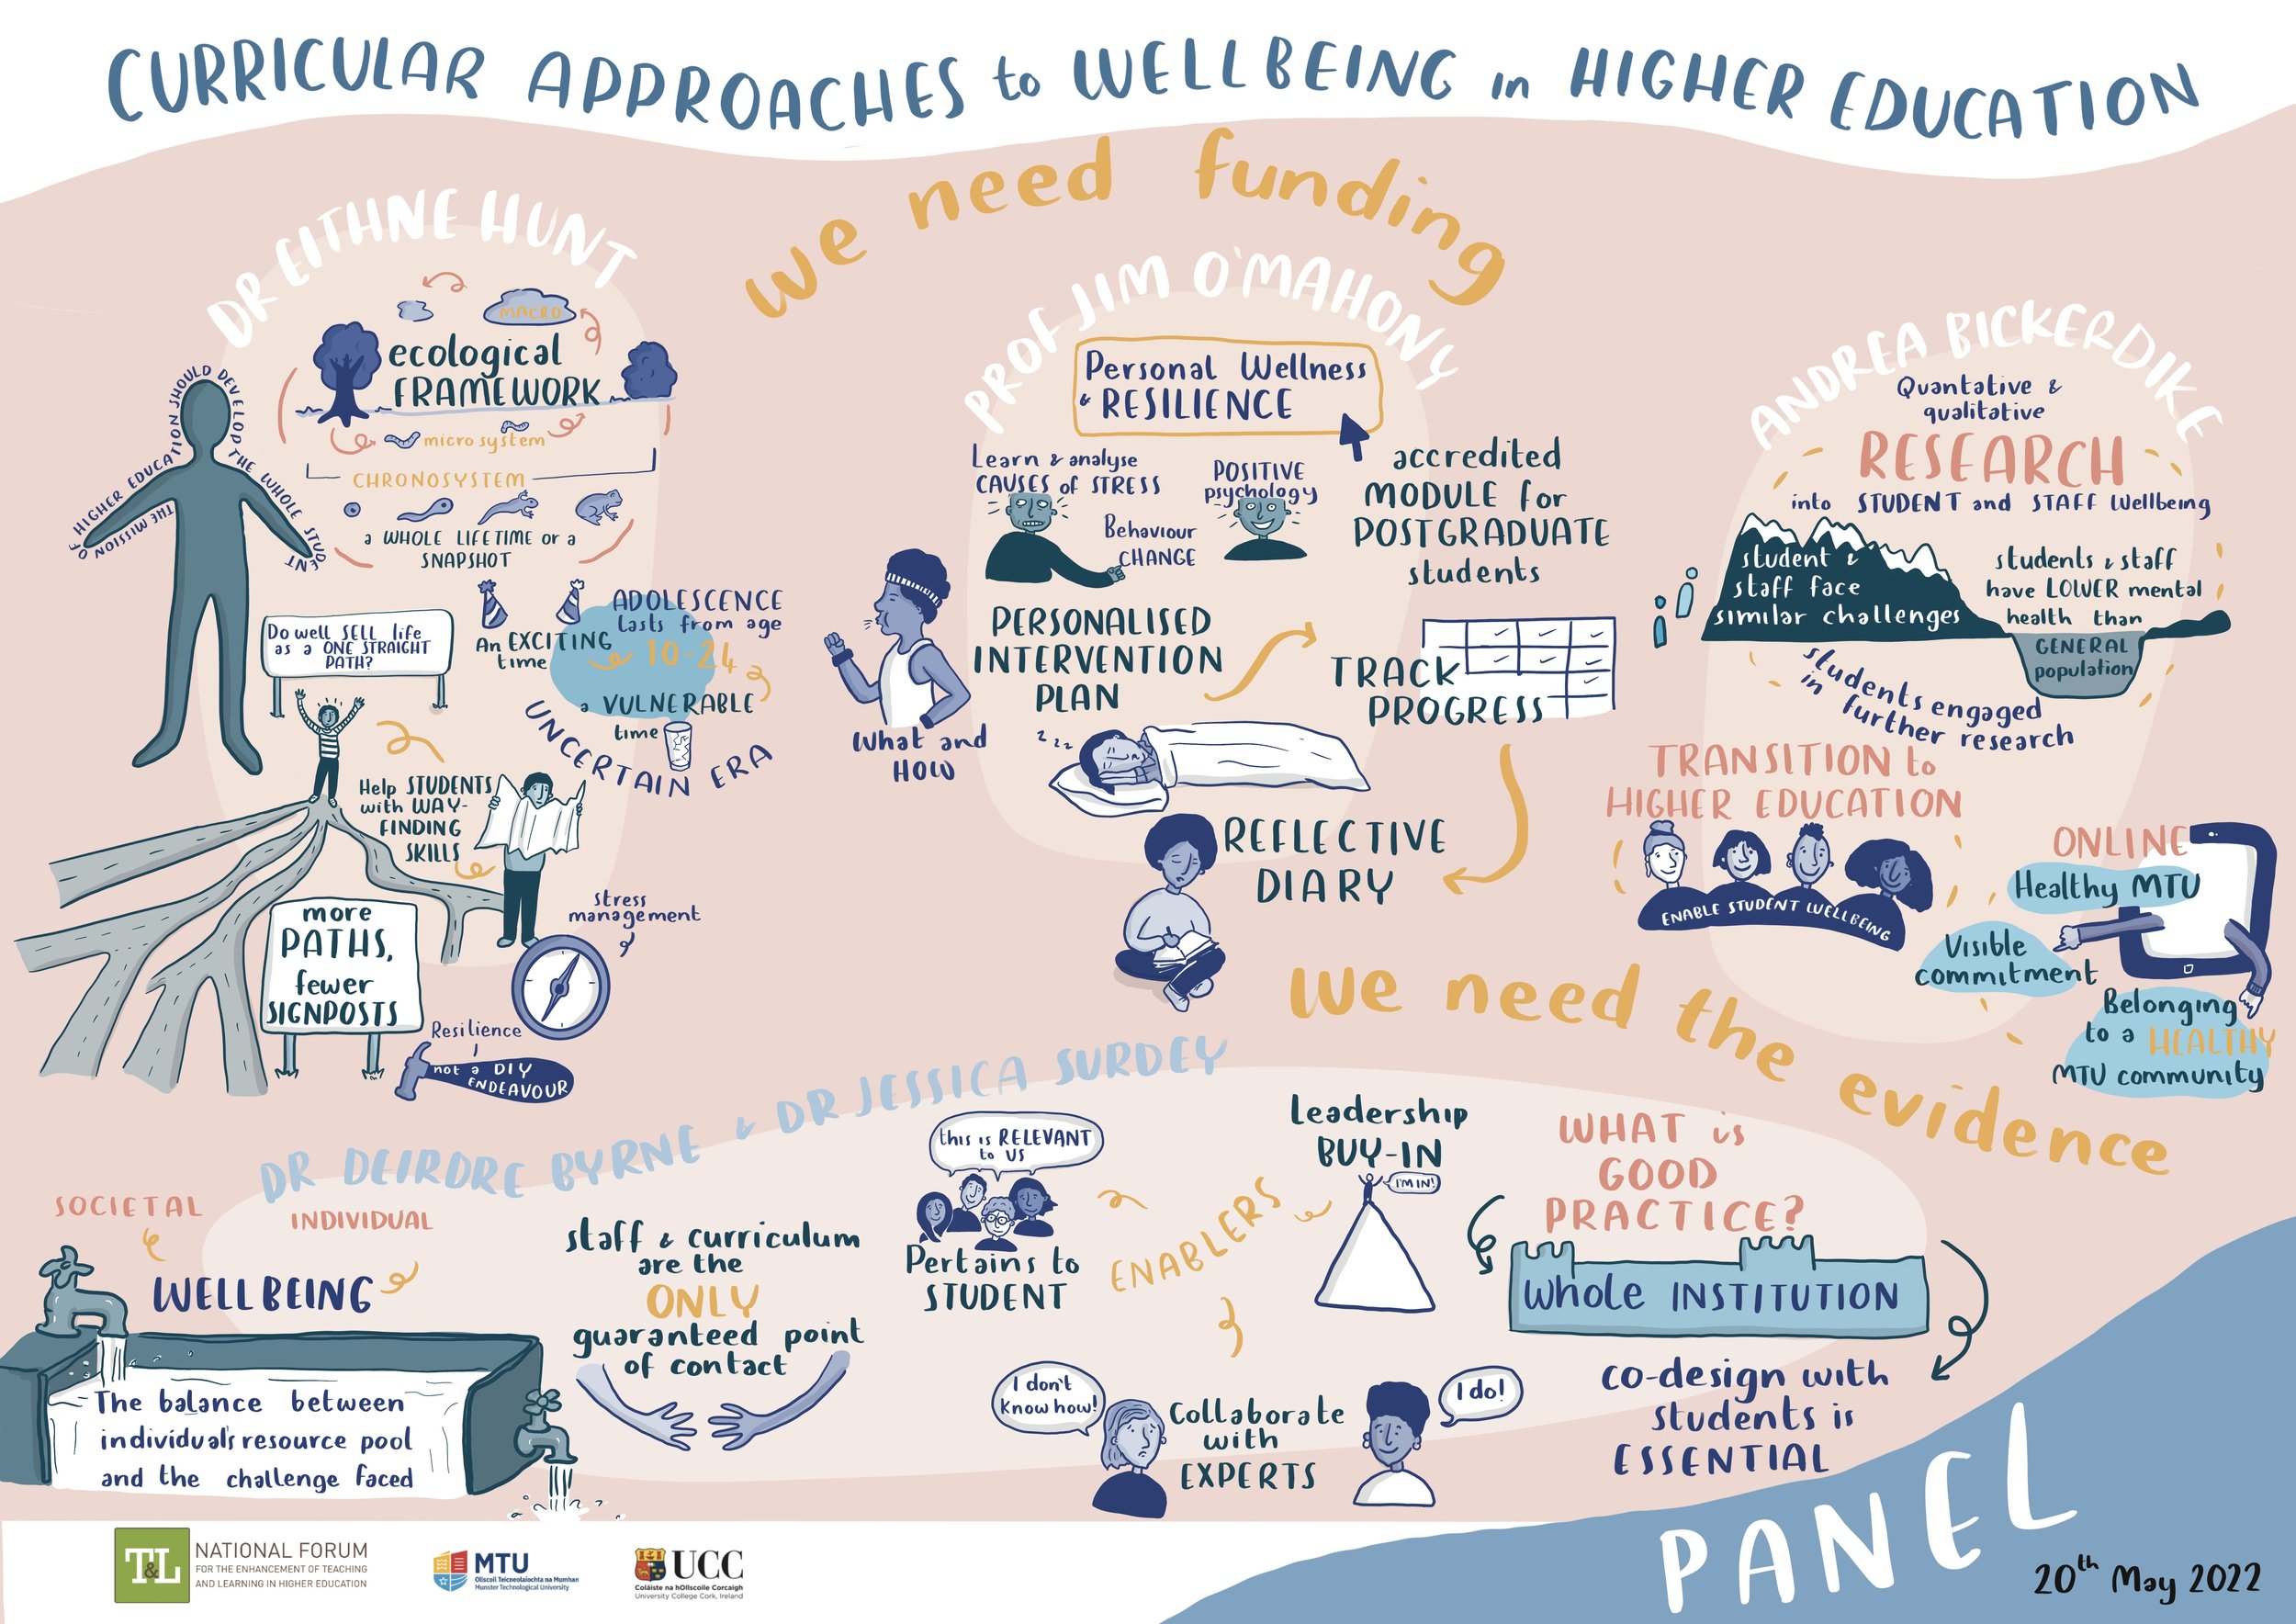 CURRICULAR APPROACHES to WELLBEING in HIGHER EDUCATION
we need funding
DR EITHNE HUNT
MACRO
ecological
FRAMEWORK
micro system
CHRONOSYSTEM
a WHOLE LIFETIME or a
SNAPSHOT
THE MISSION OF HIGHER EDUCATION SHOULD DEVELOP THE WHOLE STUDENT
Do well SELL life
as a ONE STRAIGHT
PATH?
An EXCITING
time
ADOLESCENCE
lasts from age
10-24
a VULNERABLE
time
UNCERTAIN ERA
Help STUDENTS
with WAY-
FINDING
SKILLS
more
PATHS,
fewer
SIGNPOSTS
stress
management
Resilience
not a DIY
ENDEAVOUR
PROF JIM O'MAHONY
Personal Wellness
& RESILIENCE
Learn & analyse
CAUSES of STRESS
POSITIVE
psychology
Behaviour
CHANGE
accredited
MODULE for
POSTGRADUATE
students
What and
HOW
PERSONALISED
INTERVENTION
PLAN
TRACK
PROGRESS
z z z
REFLECTIVE
DIARY
ANDREA BICKERDIKE
Quantative &
qualitative
RESEARCH
into STUDENT and STAFF Wellbeing
student &
staff face
similar challenges
students & staff
have LOWER mental
health than
GENERAL
population
students engaged
in further research
TRANSITION to
HIGHER EDUCATION
ENABLE STUDENT WELLBEING
ONLINE
Healthy MTU
Visible
commitment
Belonging
to a HEALTHY
MTU community
we need the evidence
DR DEIRDRE BYRNE & DR JESSICA SURDEY
SOCIETAL
INDIVIDUAL
WELLBEING
The balance between
individual's resource pool
and the challenge faced
staff & curriculum
are the
ONLY
guaranteed point
of contact
this is RELEVANT
to US
Pertains to
STUDENT
ENABLERS
Leadership
BUY-IN
I'M IN!
I don't
know how!
Collaborate
with
EXPERTS
I do!
WHAT is
GOOD
PRACTICE?
Whole INSTITUTION
co-design with
students is
ESSENTIAL
PANEL
20th May 2022
T&L
NATIONAL FORUM
FOR THE ENHANCEMENT OF TEACHING
AND LEARNING IN HIGHER EDUCATION
MTU
Ollscoil Teicneolaíochta na Mumhan
Munster Technological University
UCC
Coláiste na hOllscoile Corcaigh
University College Cork, Ireland